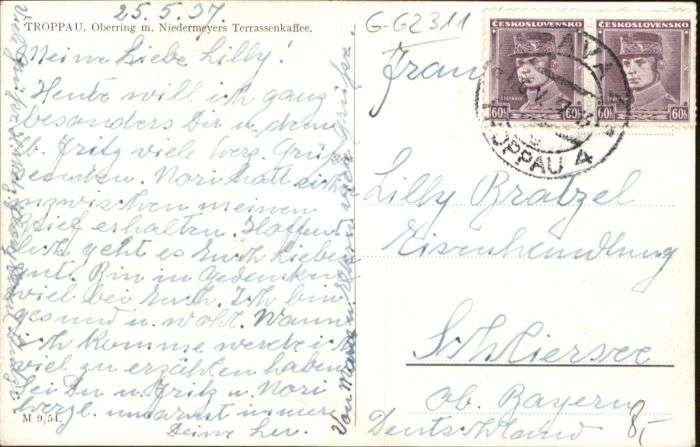 25.5.37.
TROPPAU, Oberring m. Niedermeyers Terrassenkaffee.
Meine Liebe Lilly!
Heute will ich ganz
besonders Dir u. dem
lb. Fritz viele herz. Grüße
senden. Nori hat
inzwischen meinen
Brief erhalten. Hoffent
lich geht es Euch Lieben
gut. Bin in Gedanken
viel bei Euch. Ich bin
gesund u. wohl. Wann
ich komme werde ich
viel zu erzählen haben
Sei Du u. Fritz u. Nori
herzl. umarmt immer
Deine
M 9/51
Von Mama u. viele Grüße
G-G2311
ČESKOSLOVENSKO
ČESKOSLOVENSKO
60h
60h
TROPPAU 4
Frau
Lilly Bratzel
Eisenhandlung
Schliersee
ob. Bayern
Deutschland
8,-